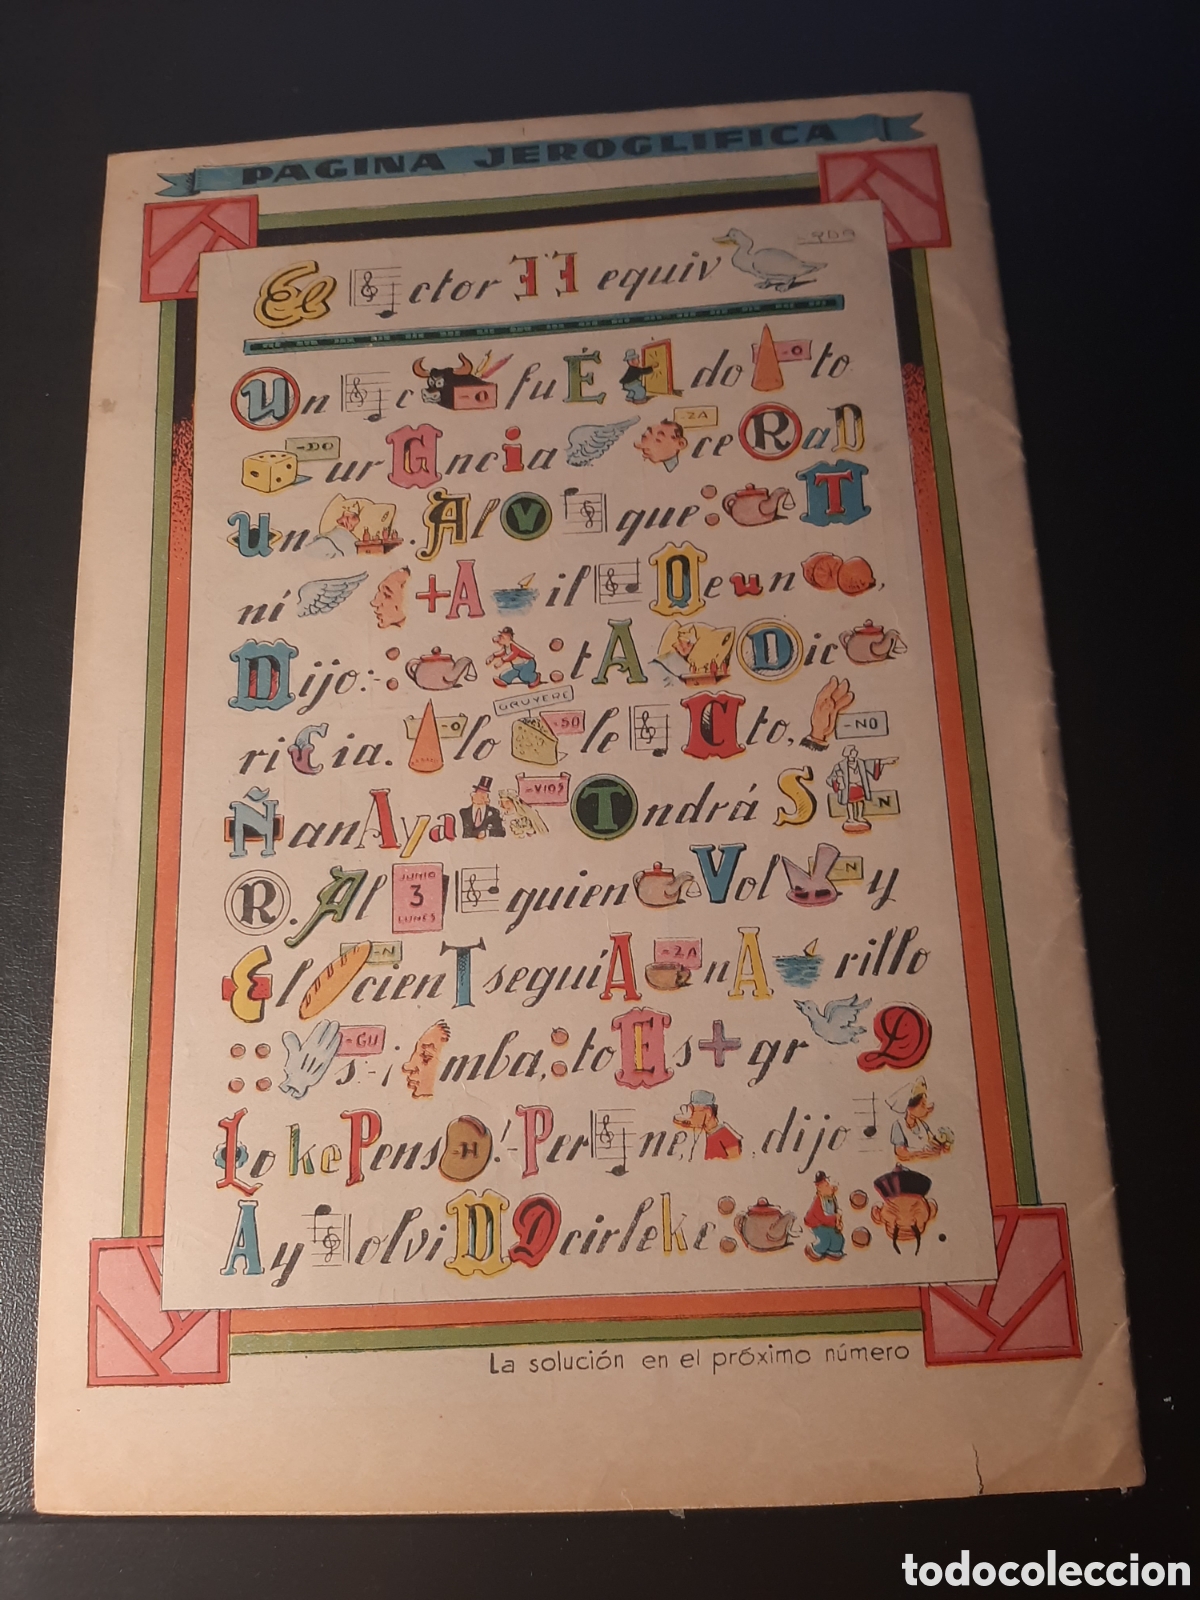 PAGINA JEROGLIFICA
El ctor EE equiv
Un c -O fuÉ do -O to
-DO urGncia -ZA ceRaD
Un . AlV que: T
ní +A il Qeun ,
Dijo:- : : tA Dic
GRUYERE
riCia. -O lo -SO le Cto, -NO
ÑanAya -VIOS Tndrá S -N
R. Al JUNIO 3 LUNES guien Vol -N y
El -N cienTseguíA -ZA nA rillo
:: -GU s-¡ mba, :toEs+gr D
LokePens -H !-Per ne, , dijo
Ay olviDDcirleke: : : .
La solución en el próximo número
todocoleccion